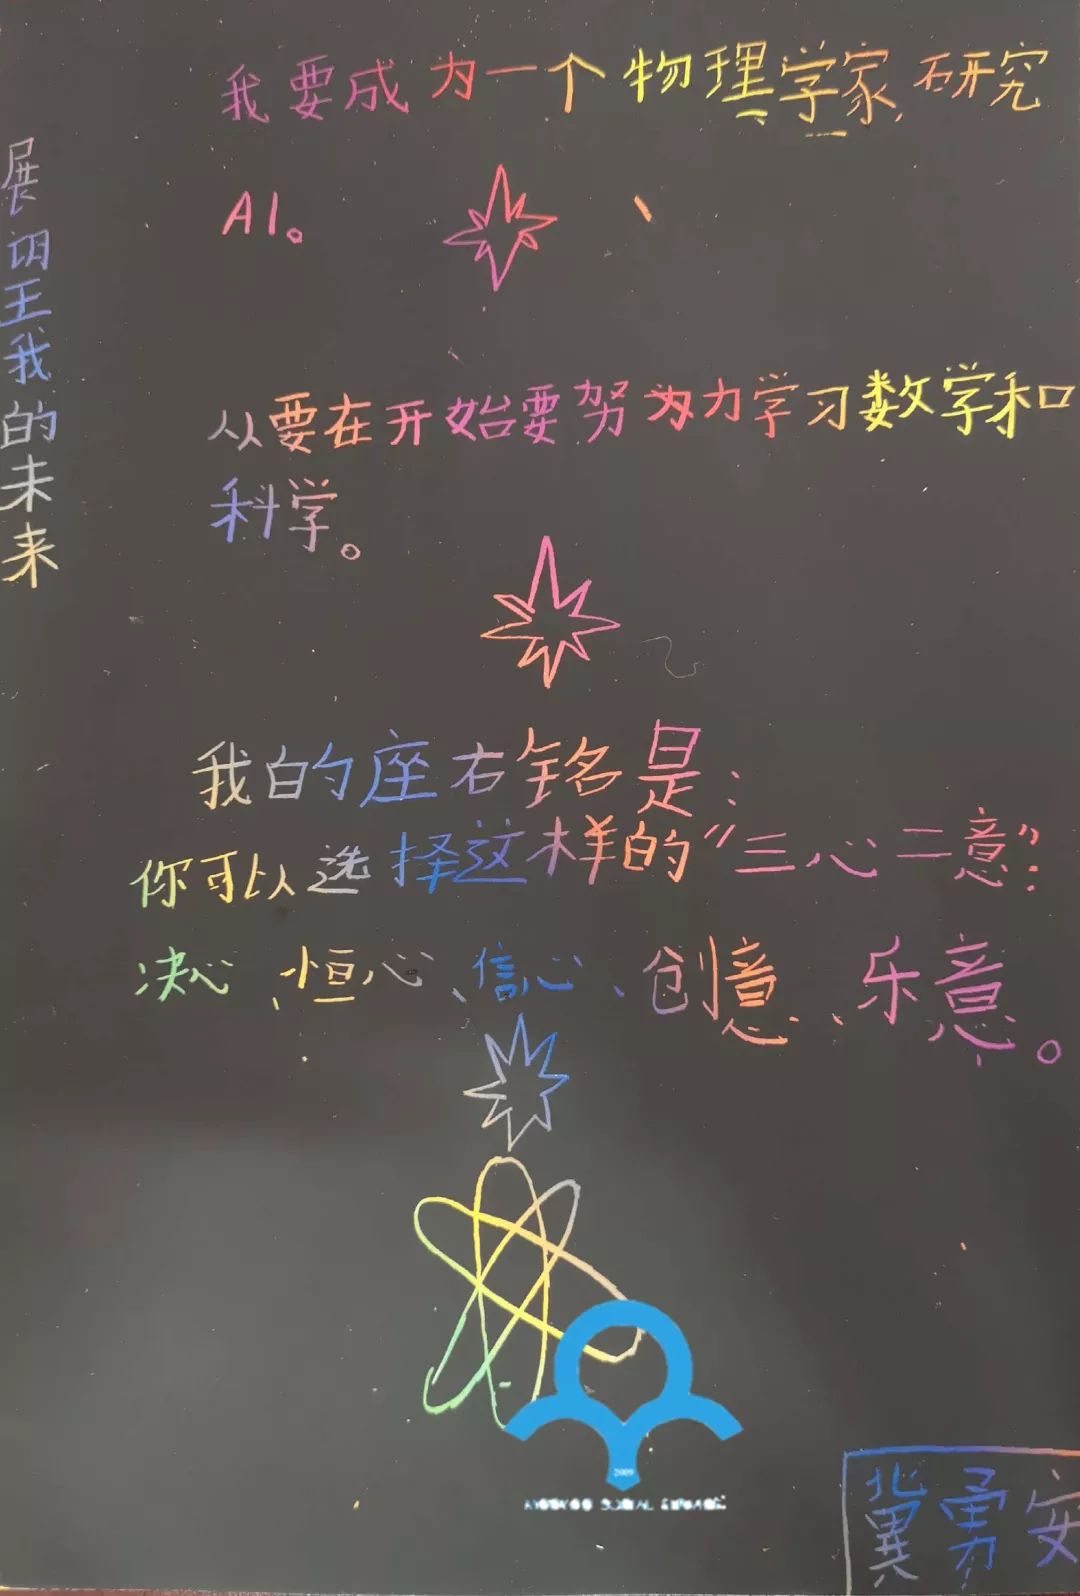 展望我的未来
我要成为一个物理学家,研究
AI。
从要在开始要努力学习数学和
科学。
我的座右铭是:
你可以选择这样的“三心二意”:
决心、恒心、信心、创意、乐意。
2009
SOCIAL
冀勇安